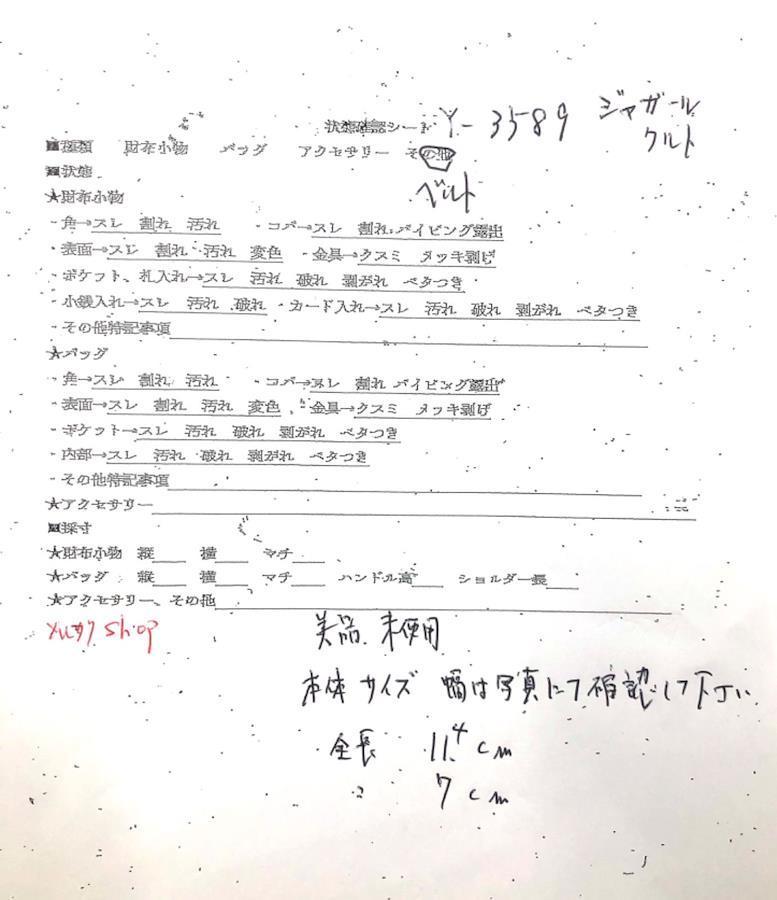 状態確認シート Y-3589 ジャガール
クルト
■種類 財布小物 バッグ アクセサリー その他
ベルト
■状態
★財布小物
・角→スレ 割れ 汚れ ・コバ→スレ 割れ パイピング露出
・表面→スレ 割れ 汚れ 変色 ・金具→クスミ メッキ剥げ
・ポケット、札入れ→スレ 汚れ 破れ 剥がれ ベタつき
・小銭入れ→スレ 汚れ 破れ ・カード入れ→スレ 汚れ 破れ 剥がれ ベタつき
・その他特記事項
★バッグ
・角→スレ 割れ 汚れ ・コバ→スレ 割れ パイピング露出
・表面→スレ 割れ 汚れ 変色 ・金具→クスミ メッキ剥げ
・ポケット→スレ 汚れ 破れ 剥がれ ベタつき
・内部→スレ 汚れ 破れ 剥がれ ベタつき
・その他特記事項
★アクセサリー
■採寸
★財布小物 縦 横 マチ
★バッグ 縦 横 マチ ハンドル高 ショルダー長
★アクセサリー、その他
メルカリ Shop 美品、未使用
本体サイズ 幅は写真にて確認して下さい
全長 11.4cm
〃 7cm